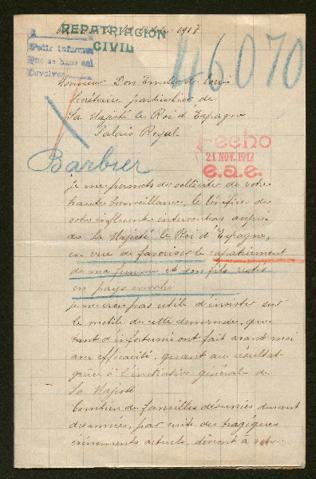 REPATRIACION
CIVIL
1917
46070
Pedir informes
que se hace así
Devolver
Monsieur Don Emilio de
Secrétaire particulier de
Sa Majesté le Roi d'Espagne
Palais Royal
Hecho
21 NOV. 1917
e.a.e.
Barbier
je me permets de solliciter de votre
haute bienveillance, le bénéfice de
votre influente intervention auprès
de Sa Majesté le Roi d'Espagne,
en vue de favoriser le rapatriement
de ma femme et son fils, restés
en pays envahi
je ne crois pas utile d'insister sur
le motif de cette demande, que
tant d'infortunés ont fait avant moi
avec efficacité, quant au résultat
grâce à l'initiative générale de
Sa Majesté
Combien de familles désunies durant
des années, par suite des tragiques
événements actuels, doivent à